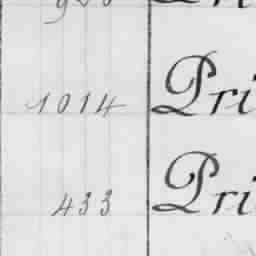 1014 Pri
433 Pri